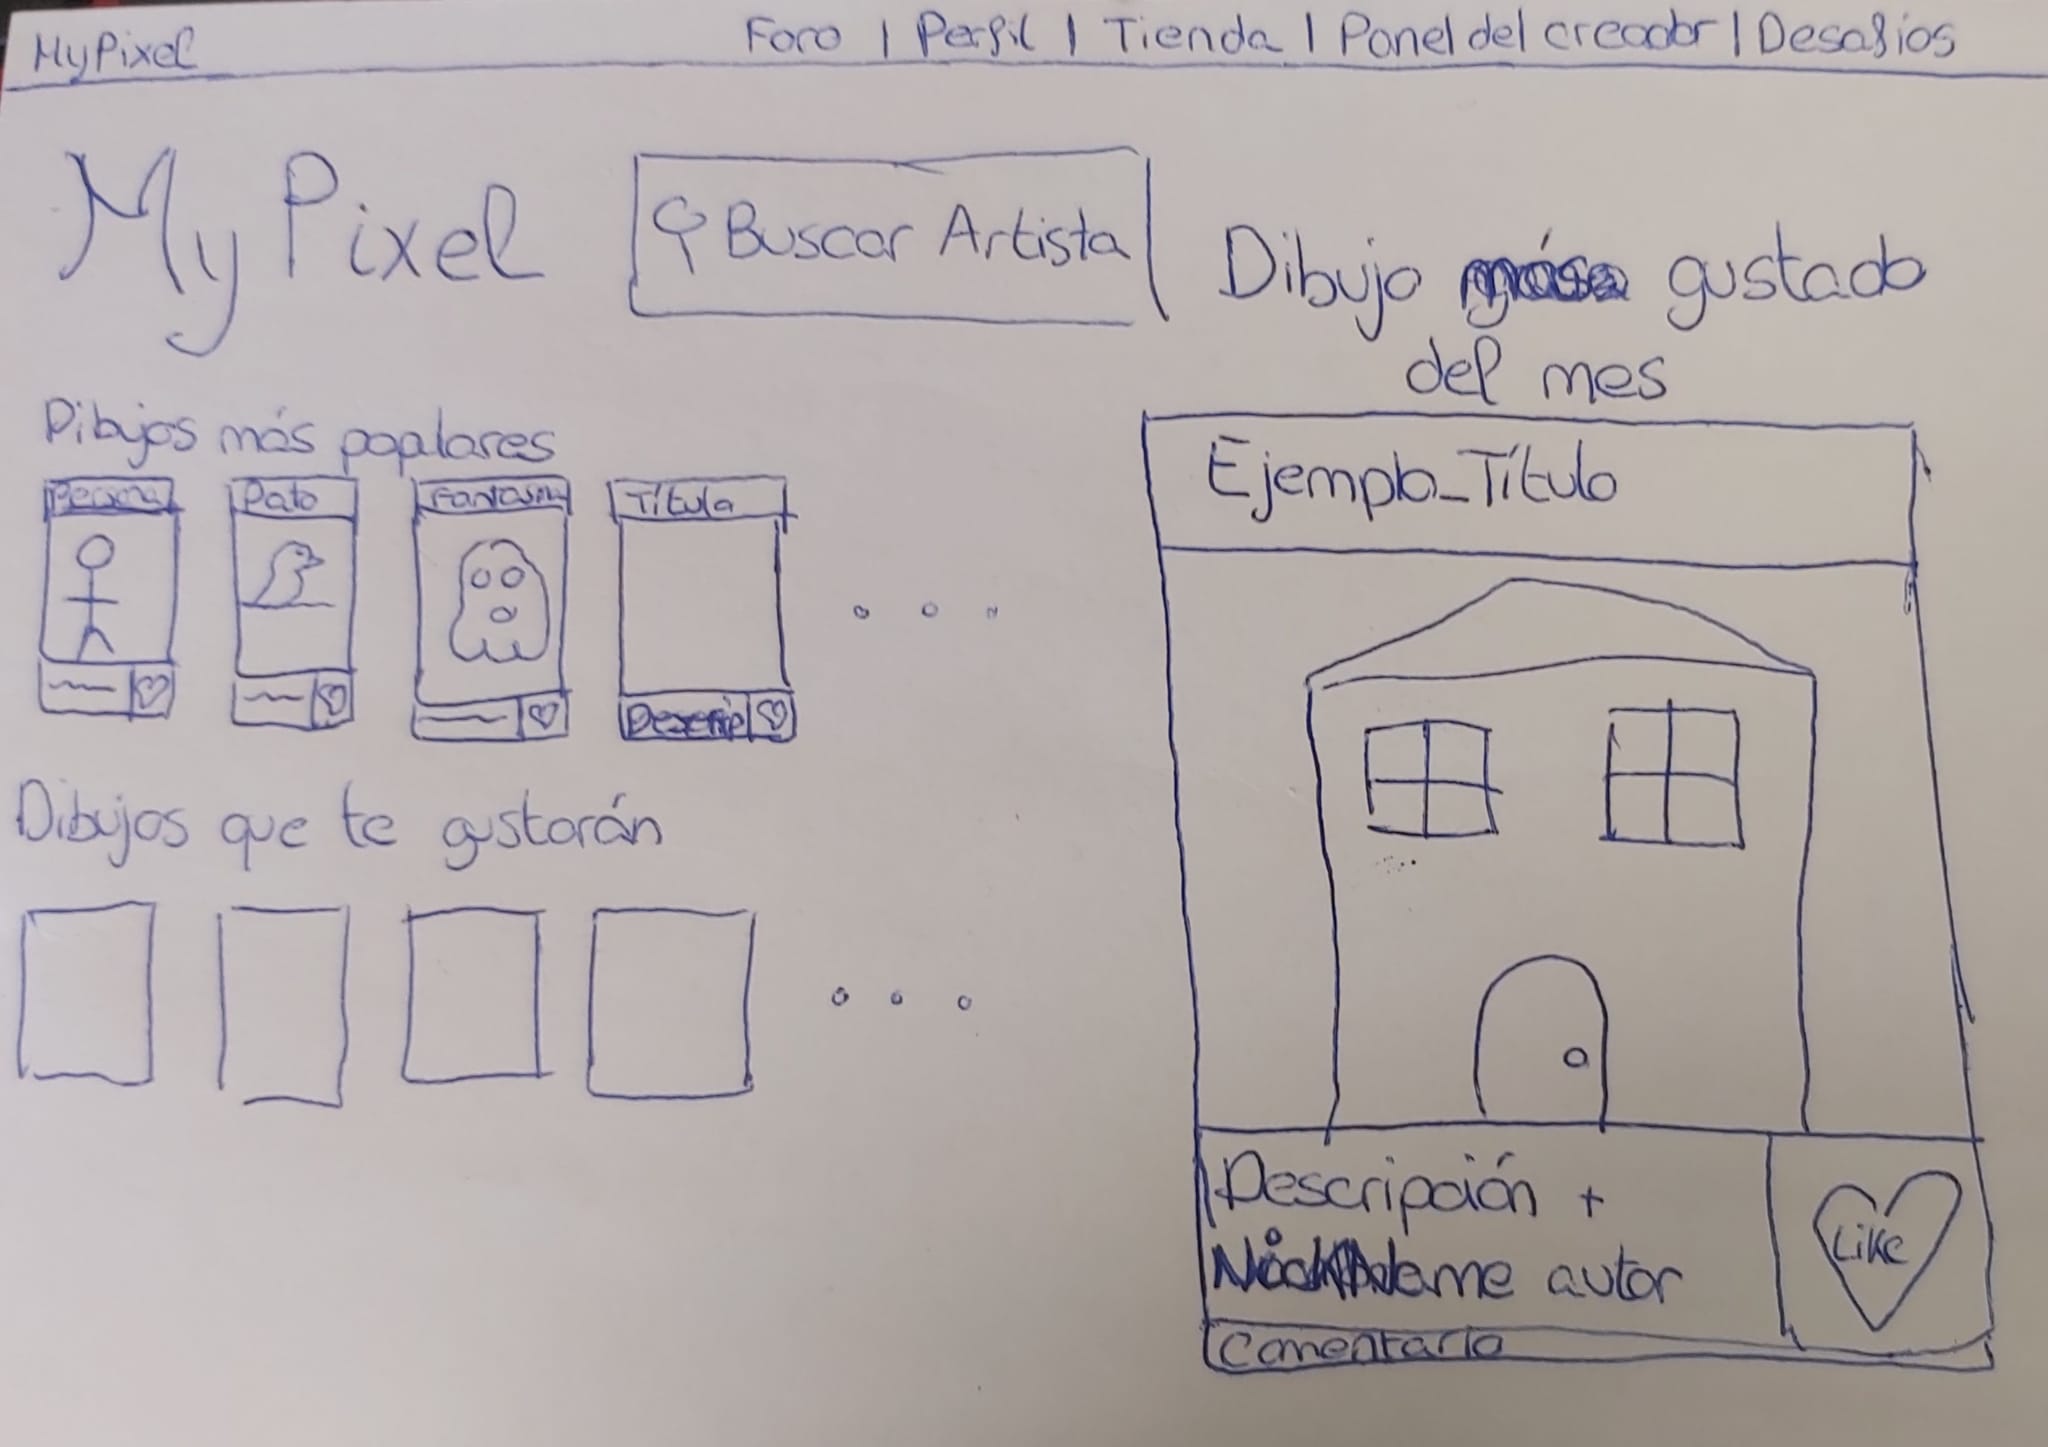 MyPixel
Foro | Perfil | Tienda | Panel del creador | Desafios
My Pixel
Buscar Artista
Dibujo más gustado
del mes
Dibujos más populares
Persona
Pato
Fantasma
Título
Descrip
Dibujos que te gustarán
Ejemplo_Título
Descripción +
NickName autor
Like
Comentario